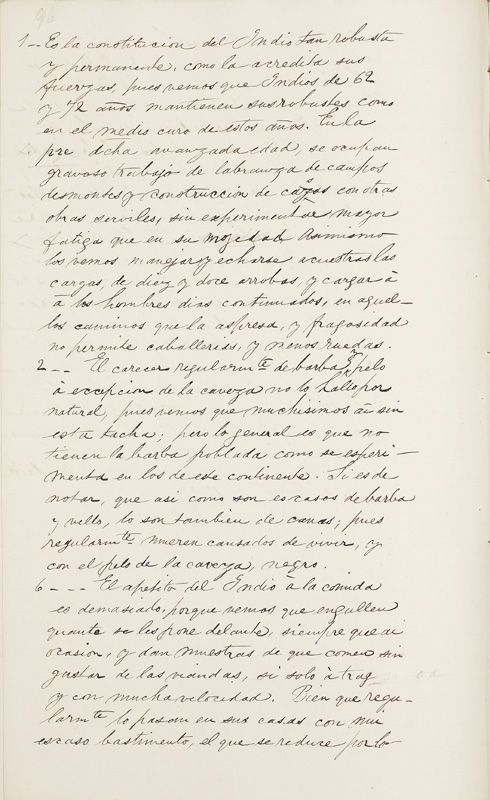 90
1 -- Es la constitucion del Indio tan robusta
y permanente, como la acredita sus
fuerzas, pues vemos que Indios de 62
y 72 años mantienen sus robustes como
en el medio curo de estos años. En la
pre dcha avanzada edad, se ocupan
gravoso trabajo de labranza de campos
desmontes y construccion de cazas con otras
obras serviles, sin experimentar mayor
fatiga que en su mozedad. Asimismo
los vemos manejar y echarse a cuestras las
cargas, de diez y doce arrobas, y cargar à
à los hombres dias continuados, en aquel-
los caminos que la aspresa, y fragosidad
no permite caballerias, y menos ruedas.
2 -- El carecer regularmte de barba y pelo
à excepcion de la caveza no lo hallo por
natural, pues vemos que muchisimos ái sin
esta tacha; pero lo general es que no
tienen la barba poblada como se esperi-
menta en los de este continente. Si es de
notar, que asi como son escasos de barba
y vello, lo son tambien de canas; pues
regularmte mueren cansados de vivir, y
con el pelo de la caveza, negro.
6 --- El apetito del Indio à la comida
es demasiado, porque vemos que engullen
quanto se les pone delante, siempre que ái
ocasion, y dan muestras de que comen sin
gustar de las viandas, si solo à trag
y con mucha velocidad. Bien que regu-
larmte lo pasan en sus casas con mui
escaso bastimento, el que se reduce por lo